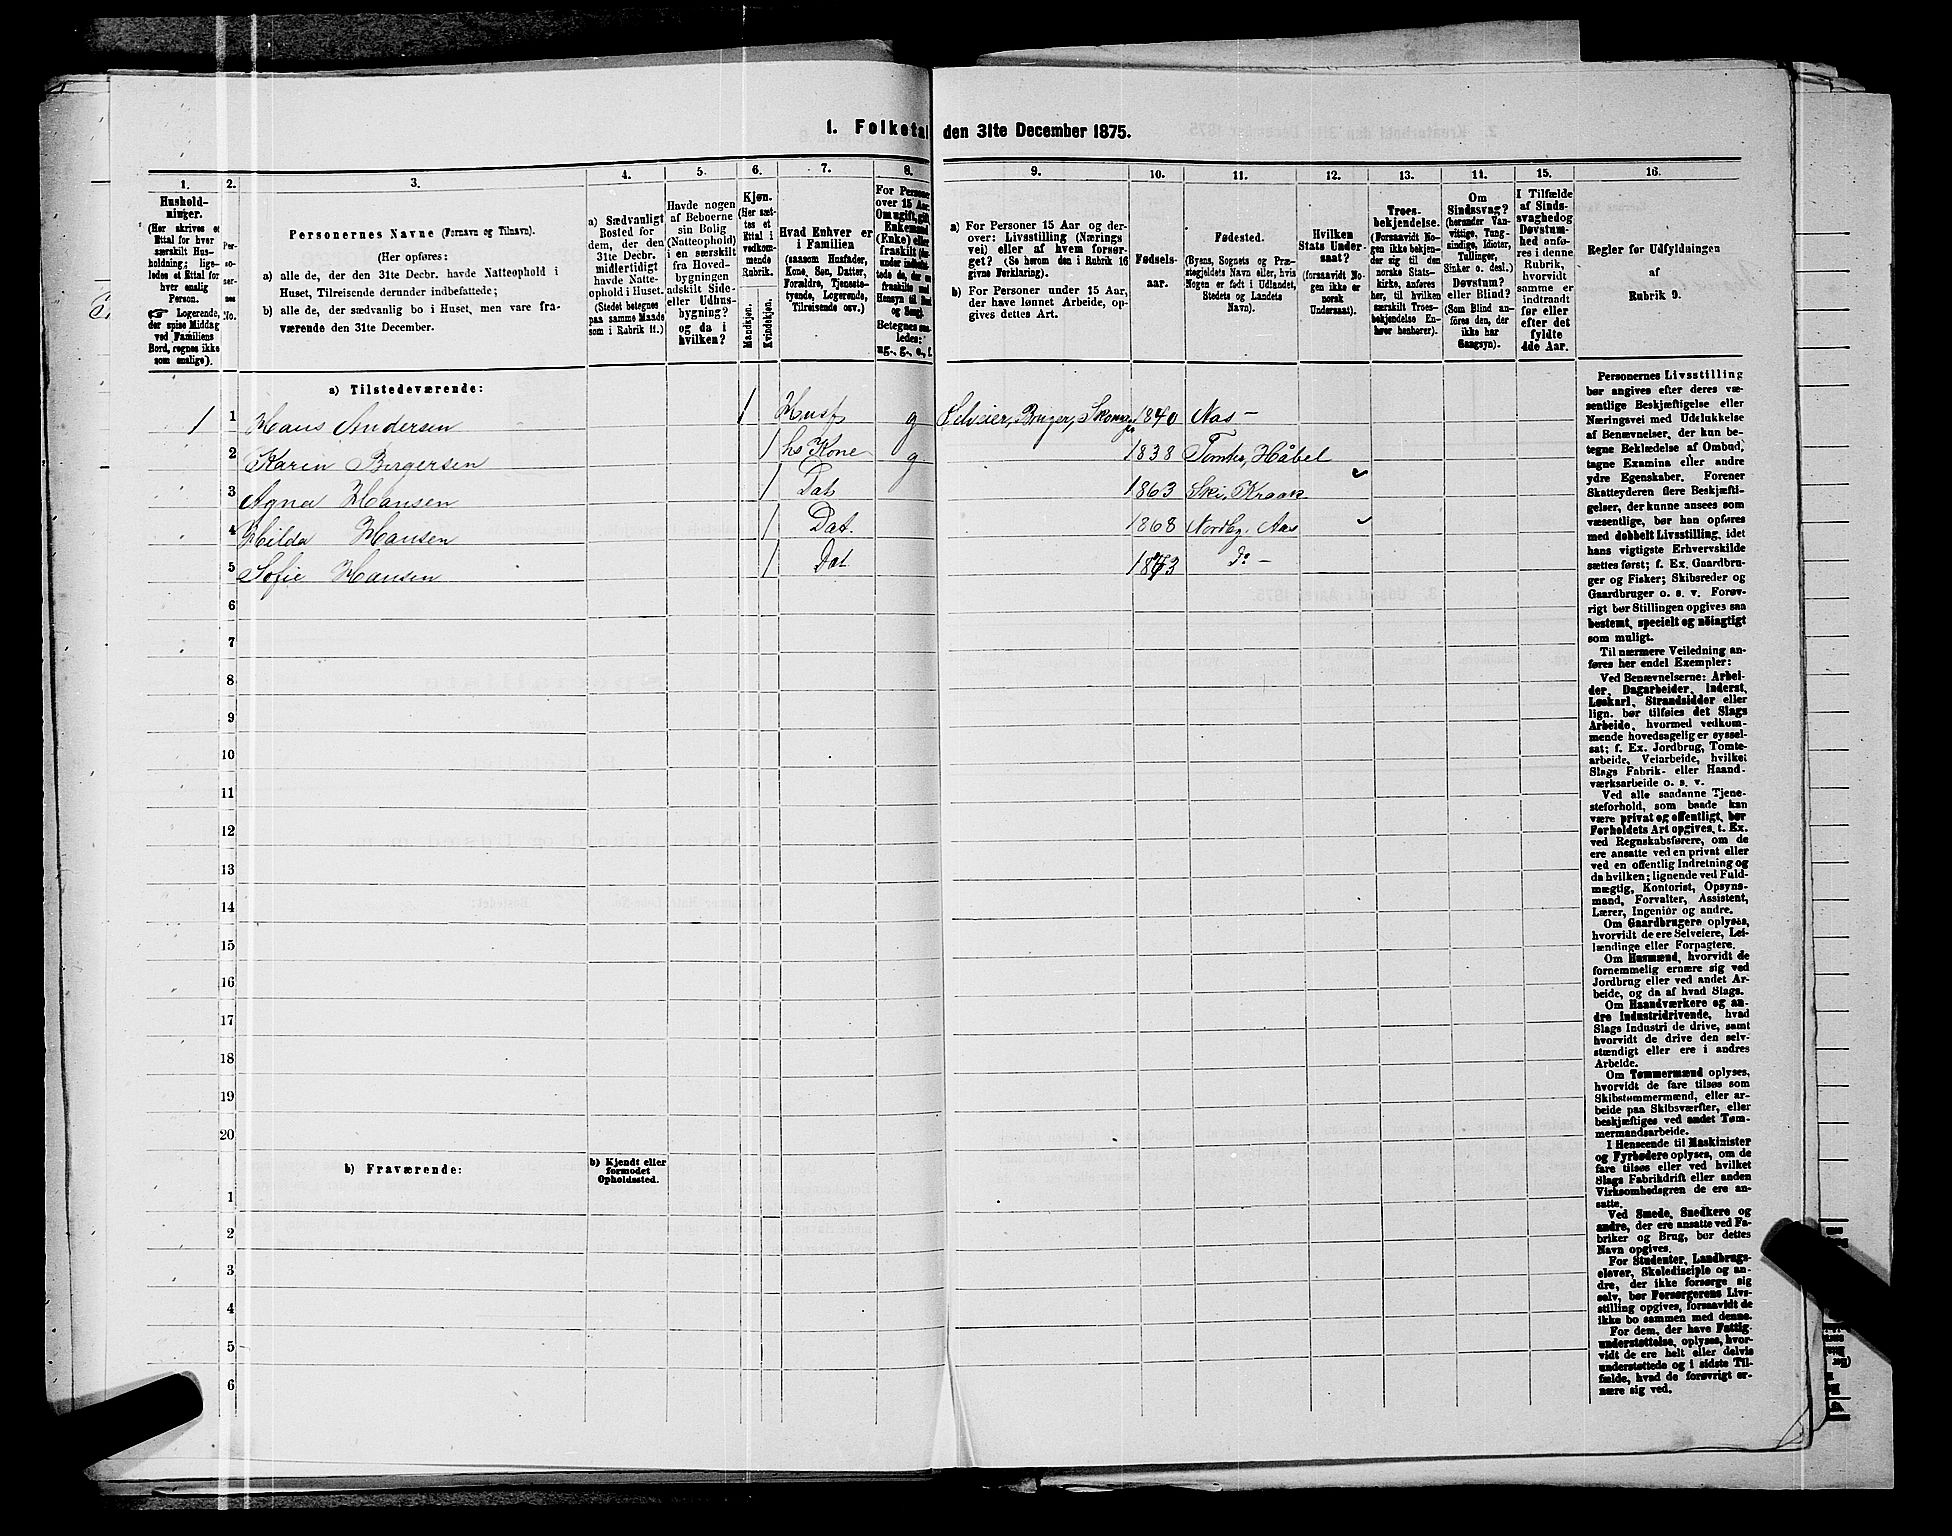 1. Folketal den 31te December 1875.
1. 2. 3. 4. 5. 6. 7. 8. 9. 10. 11. 12. 13. 14. 15. 16.
Hushold-
ninger.
(Her skrives et
Ettal for hver
særskilt Hus-
holdning; lige-
ledes et Ettal for
hver enslig
Person.
☞ Logerende,
der spise Middag
ved Familiens
Bord, regnes ikke
som enslige).
Per-
so-
ner-
nes
No.
Personernes Navne (Fornavn og Tilnavn).
(Her opføres:
a) alle de, der den 31te Decbr. havde Natteophold i
Huset, Tilreisende derunder indbefattede;
b) alle de, der sædvanlig bo i Huset, men vare fra-
værende den 31te December.
a) Sædvanligt
Bosted for
dem, der den
31te Decbr.
midlertidigt
havde Natte-
ophold i Huset.
(Stedet betegnes
paa samme Maade
som i Rubrik 11.)
Havde nogen
af Beboerne
sin Bolig
(Natteophold)
i en særskilt
fra Hoved-
bygningen
adskilt Side-
eller Udhus-
bygning?
og da i
hvilken?
Kjøn.
(Her sæt-
tes et
Ettal i
vedkom-
mende
Rubrik.
Mandkjøn.
Kvindekjøn.
Hvad Enhver er
i Familien
(saasom Husfader,
Kone, Søn, Datter,
Forældre, Tjeneste-
tyende, Logerende,
Tilreisende osv.)
For Personer
over 15 Aar:
Om ugift, gift,
Enkemand
(Enke) eller
fraskilt
Betegnes saa-
ledes:
ug., g., e., f.
a) For Personer 15 Aar og der-
over: Livsstilling (Nærings
vei) eller af hvem forsør-
get? (Se herom den i Rubrik 16
givne Forklaring).
b) For Personer under 15 Aar,
der have lønnet Arbeide, op-
gives dettes Art.
Fødsels-
aar.
Fødested.
(Byens, Sognets og Præ-
stegjeldets Navn eller, hvis
Nogen er født i Udlandet,
Stedets og Landets
Navn).
Hvilken
Stats Under-
saat?
(forsaavidt No-
gen ikke er
norsk
Undersaat).
Troes-
bekjendelse.
(Forsaavidt No-
gen ikke bekjen-
der sig til den
norske Stats-
kirke, anføres
her, til hvilken
særskilt Troes-
bekjendelse En-
hver henhører).
Om
Sindssvag?
(herunder Van-
vittige, Tung-
sindige, Idioter,
Tullinger,
Sinker o. desl.)
Døvstum?
eller Blind?
(Som Blind an-
føres den, der
ikke har
Gangsyn).
I Tilfælde
af Sinds-
svaghed og
Døvstum-
hed anfø-
res i denne
Rubrik,
hvorvidt
samme er
indtraadt
før eller
efter det
fyldte
4de Aar.
Regler for Udfyldningen
af
Rubrik 9.
a) Tilstedeværende:
1 1 Hans Andersen 1 Husf g Selveier, Bruger, 1840 Aas –
2 Karen Bergersen 1 hs Kone g 1838 Tomter, Håbel
3 Agna Hansen 1 Dat 1863 Ski, Kraak
4 Hilda Hansen 1 Dat. 1868 Nordby, Aas
5 Sofie Hansen 1 Dat 1873 Do –
6
7
8
9
10
11
12
13
14
15
16
17
18
19
20
b) Fraværende:
b) Kjendt eller
formodet
Opholdssted.
1
2
3
4
5
6
Personernes Livsstilling
bør angives efter deres væ-
sentlige Beskjæftigelse eller
Næringsvei med Udelukkelse
af Benævnelser, der kun be-
tegne Beklædelse af Ombud,
tagne Examina eller andre
ydre Egenskaber. Forener
Skatteyderen flere Beskjæfti-
gelser, der kunne ansees som
væsentlige, bør han opføres
med dobbelt Livsstilling, idet
hans vigtigste Erhvervskilde
sættes først; f. Ex. Gaardbru-
ger og Fisker; Skibsreder og
Gaardbruger o. s. v. Forøv-
rigt bør Stillingen opgives saa
bestemt, specielt og nöiagtigt
som muligt.
Til nærmere Veiledning an-
føres her endel Exempler:
Ved Benævnelserne: Arbei-
der, Dagarbeider, Inderst,
Løskarl, Strandsidder eller
lign. bør tilføies det Slags
Arbeide, hvormed vedkom-
mende hovedsagelig er syssel-
sat; f. Ex. Jordbrug, Tomte-
arbeide, Veiarbeide, hvilket
Slags Fabrik- eller Haand-
værksarbeide o. s. v.
Ved alle saadanne Tjene-
steforhold, som baade kan
være privat og offentligt, bør
Forholdets Art opgives, t. Ex.
ved Regnskabsførere, om de
ere ansatte ved en privat eller
ved en offentlig Indretning og
da hvilken; lignende ved Fuld-
mægtig, Kontorist, Opsyns-
mand, Forvalter, Assistent,
Lærer, Ingeniør og andre.
Om Gaardbrugere oplyses,
hvorvidt de ere Selveiere, Lei-
lændinge eller Forpagtere.
Om Husmænd, hvorvidt de
fornemmelig ernære sig ved
Jordbrug eller ved andet Ar-
beide, og da af hvad Slags.
Om Haandværkere og an-
dre Industridrivende, hvad
Slags Industri de drive, samt
hvorvidt de drive den selv-
stændigt eller ere i andres
Arbeide.
Om Tømmermænd oplyses,
hvorvidt de fare tilsøs som
Skibstømmermænd, eller ar-
beide paa Skibsværfter, eller
beskjæftiges ved andet Tøm-
mermandsarbeide.
I Henseende til Maskinister
og Fyrbødere oplyses, om de
fare tilsøs eller ved hvilket
Slags Fabrikdrift eller anden
Virksomhedsgren de ere an-
satte.
Ved Smede, Snedkere og
andre, der ere ansatte ved Fa-
briker og Brug, bør dettes
Navn opgives.
For Studenter, Landbrugs-
elever, Skoledisciple og an-
dre, der ikke forsørge sig
selv, bør Forsørgerens Livs-
stilling opgives, forsaavidt de
ikke bo sammen med denne.
For dem, der have Fattig-
understøttelse, oplyses, hvor-
vidt de ere helt eller delvis
understøttede og i sidste Til-
fælde, hvad de forøvrigt er-
nære sig ved.